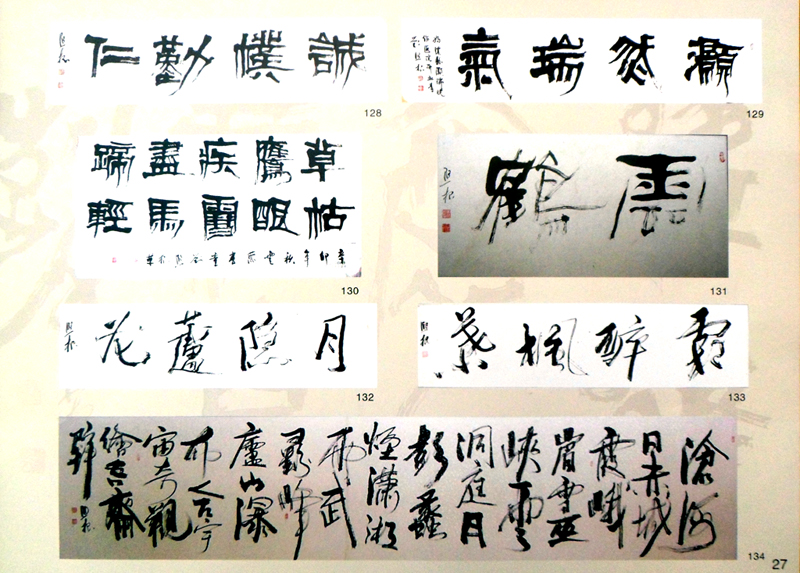 誠樸勤仁
128
灝然瑞氣
129
草枯
鷹眼
疾雪
盡馬
蹄輕
130
雲鶴
131
月隱蘆花
132
霜醉楓葉
133
滄海
日赤城
霞峨
眉雪巫
峽雲
洞庭月
彭蠡
煙瀟湘
雨武
彝峰
廬山瀑
布合宇
宙奇觀
繪吾齋
壁
134
27